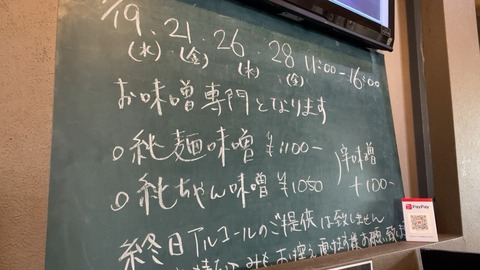 /19. 21. 26. 28 11:00-16:00
(水) (金) (水) (金)
お味噌専門となります
○純麺味噌 ¥1100-
○純ちゃん味噌 ¥1050
辛味噌
+100-
終日アルコールのご提供は致しません
PayPay